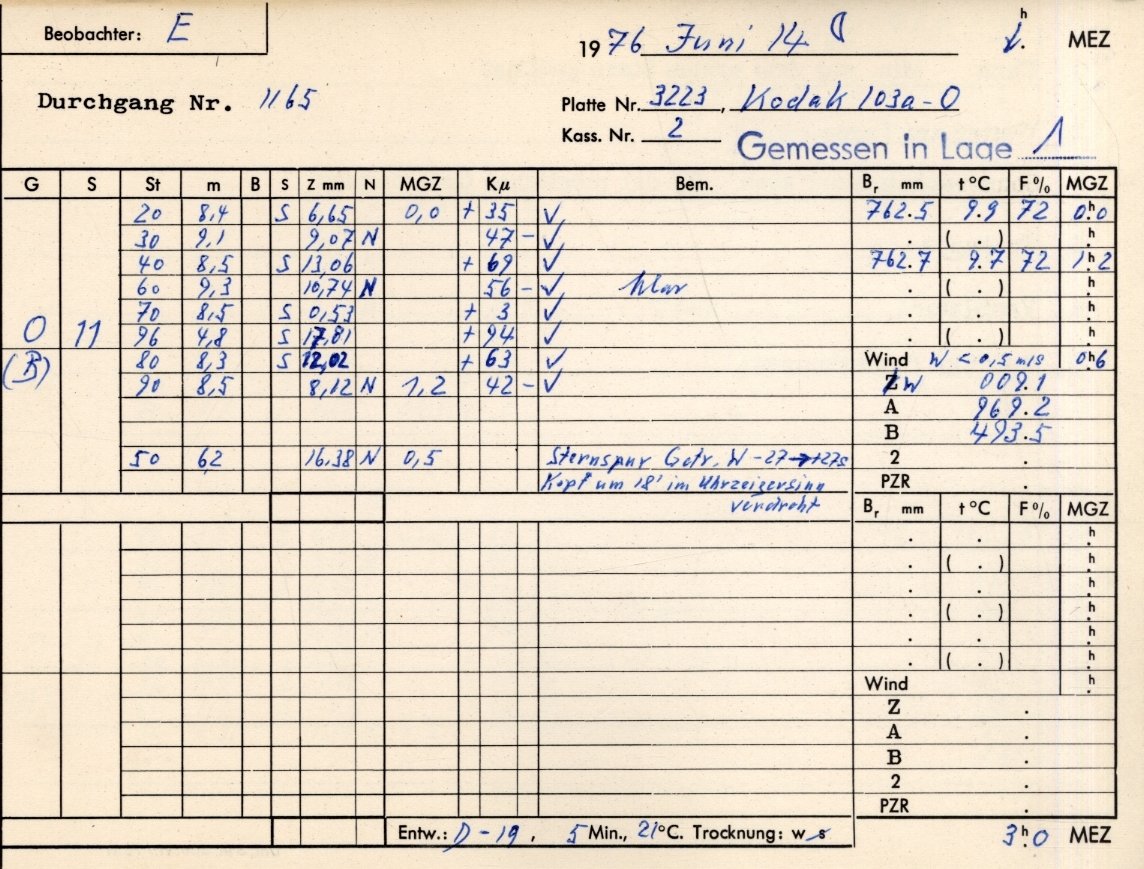 Beobachter: E
1976 Juni 14 h MEZ
Durchgang Nr. 1165
Platte Nr. 3223, Kodak 103a-O
Kass. Nr. 2
Gemessen in Lage 1
G S St m B S Z mm N MGZ Kµ Bem. Br mm t °C F % MGZ
20 8,4 S 6,65 0,0 + 35 ✓ 762.5 9.9 72 0h.0
30 9,1 9,07 N 47 - ✓ . ( . ) h.
40 8,5 S 13,06 + 69 ✓ 762.7 9.7 72 1h.2
60 9,3 10,74 N 56 - ✓ klar . ( . ) h.
70 8,5 S 0,53 + 3 ✓ . . h.
O 11 96 4,8 S 17,81 + 94 ✓ . ( . ) h.
(B) 80 8,3 S 12,02 + 63 ✓ Wind W < 0,5 m/s 0h.6
90 8,5 8,12 N 1,2 42 - ✓ Z W 009.1
A 969.2
B 493.5
50 6,2 16,38 N 0,5 Sternspur Getr. W -27 → +27s 2 .
Kopf um 18' im Uhrzeigersinn PZR .
verdreht Br mm t °C F % MGZ
. . h.
. ( . ) h.
. . h.
. ( . ) h.
. . h.
. ( . ) h.
Wind h.
Z .
A .
B .
2 .
PZR .
Entw.: D-19, 5 Min., 21°C. Trocknung: w s 3h.0 MEZ